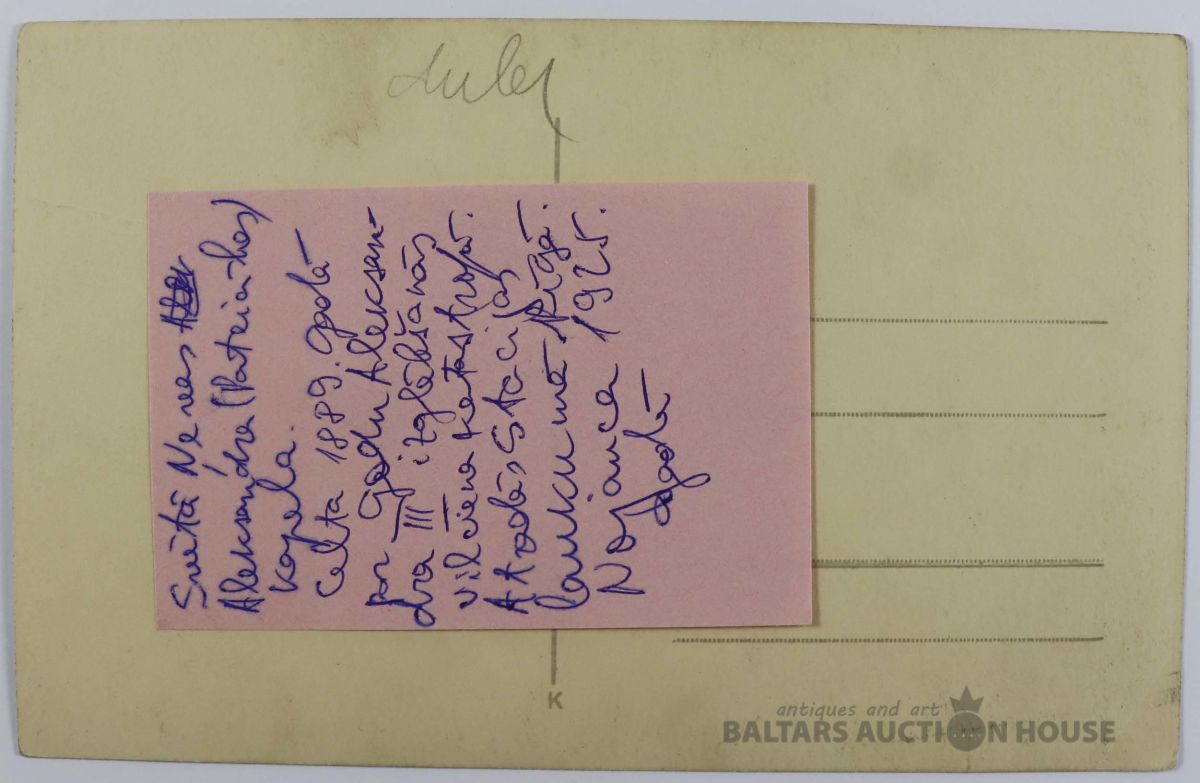 Svētā Ņevas
Aleksandra (Patriarhas)
kapela.
Celta 1889. gadā
par godu Aleksan-
dra III izglābšanās
vilciena katastrofā.
Atradās Stacijas
laukumā Rīgā.
Nojauca 1925.
gadā
K
antiques and art
BALTARS AUCTION HOUSE